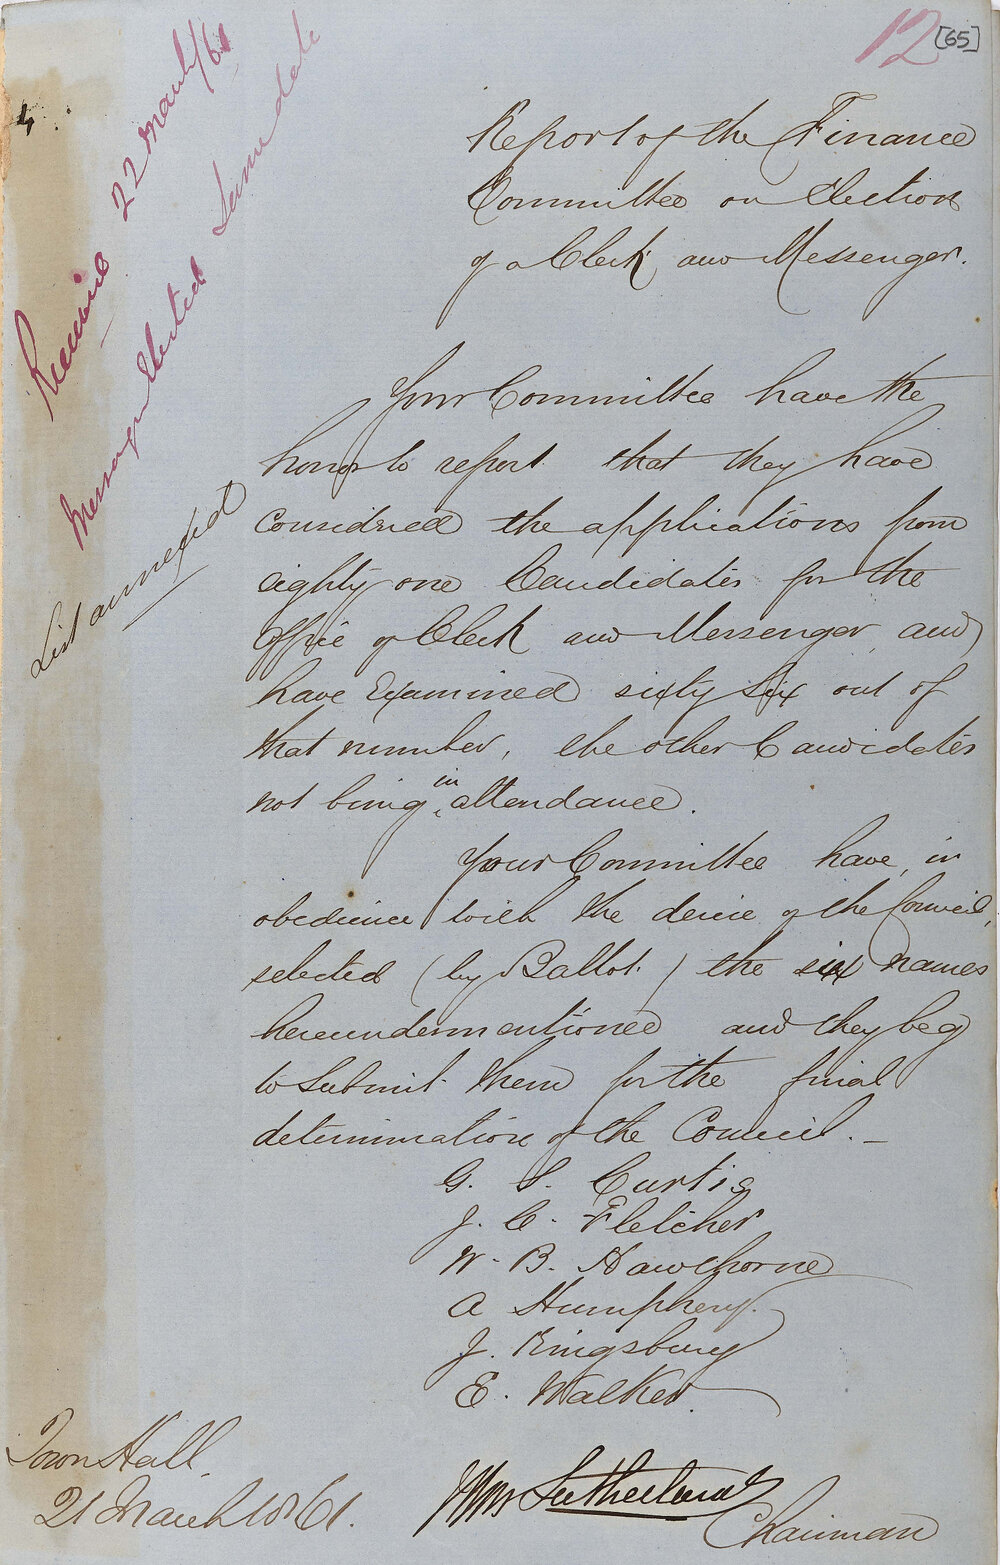 12 [65]
4
Received 22 March/61
Messenger Elected Same date
List annexed
Report of the Finance
Committee on Election
of a Clerk and Messenger.
Your Committee have the
honor to report that they have
considered the applications from
eighty one Candidates for the
Office of Clerk and Messenger, and
have Examined sixty six out of
that number, the other Candidates
not being in attendance.
Your Committee have, in
obedience with the desire of the Council,
selected (by Ballot.) the six names
hereundermentioned and they beg
to Submit them for the final
determination of the Council. —
G. S. Curtis
J. C. Fletcher
W. B. Hawthorne
A Humphery.
J. Kingsbury
E. Walker
Town Hall
21 March 1861.
Sutherland
Chairman